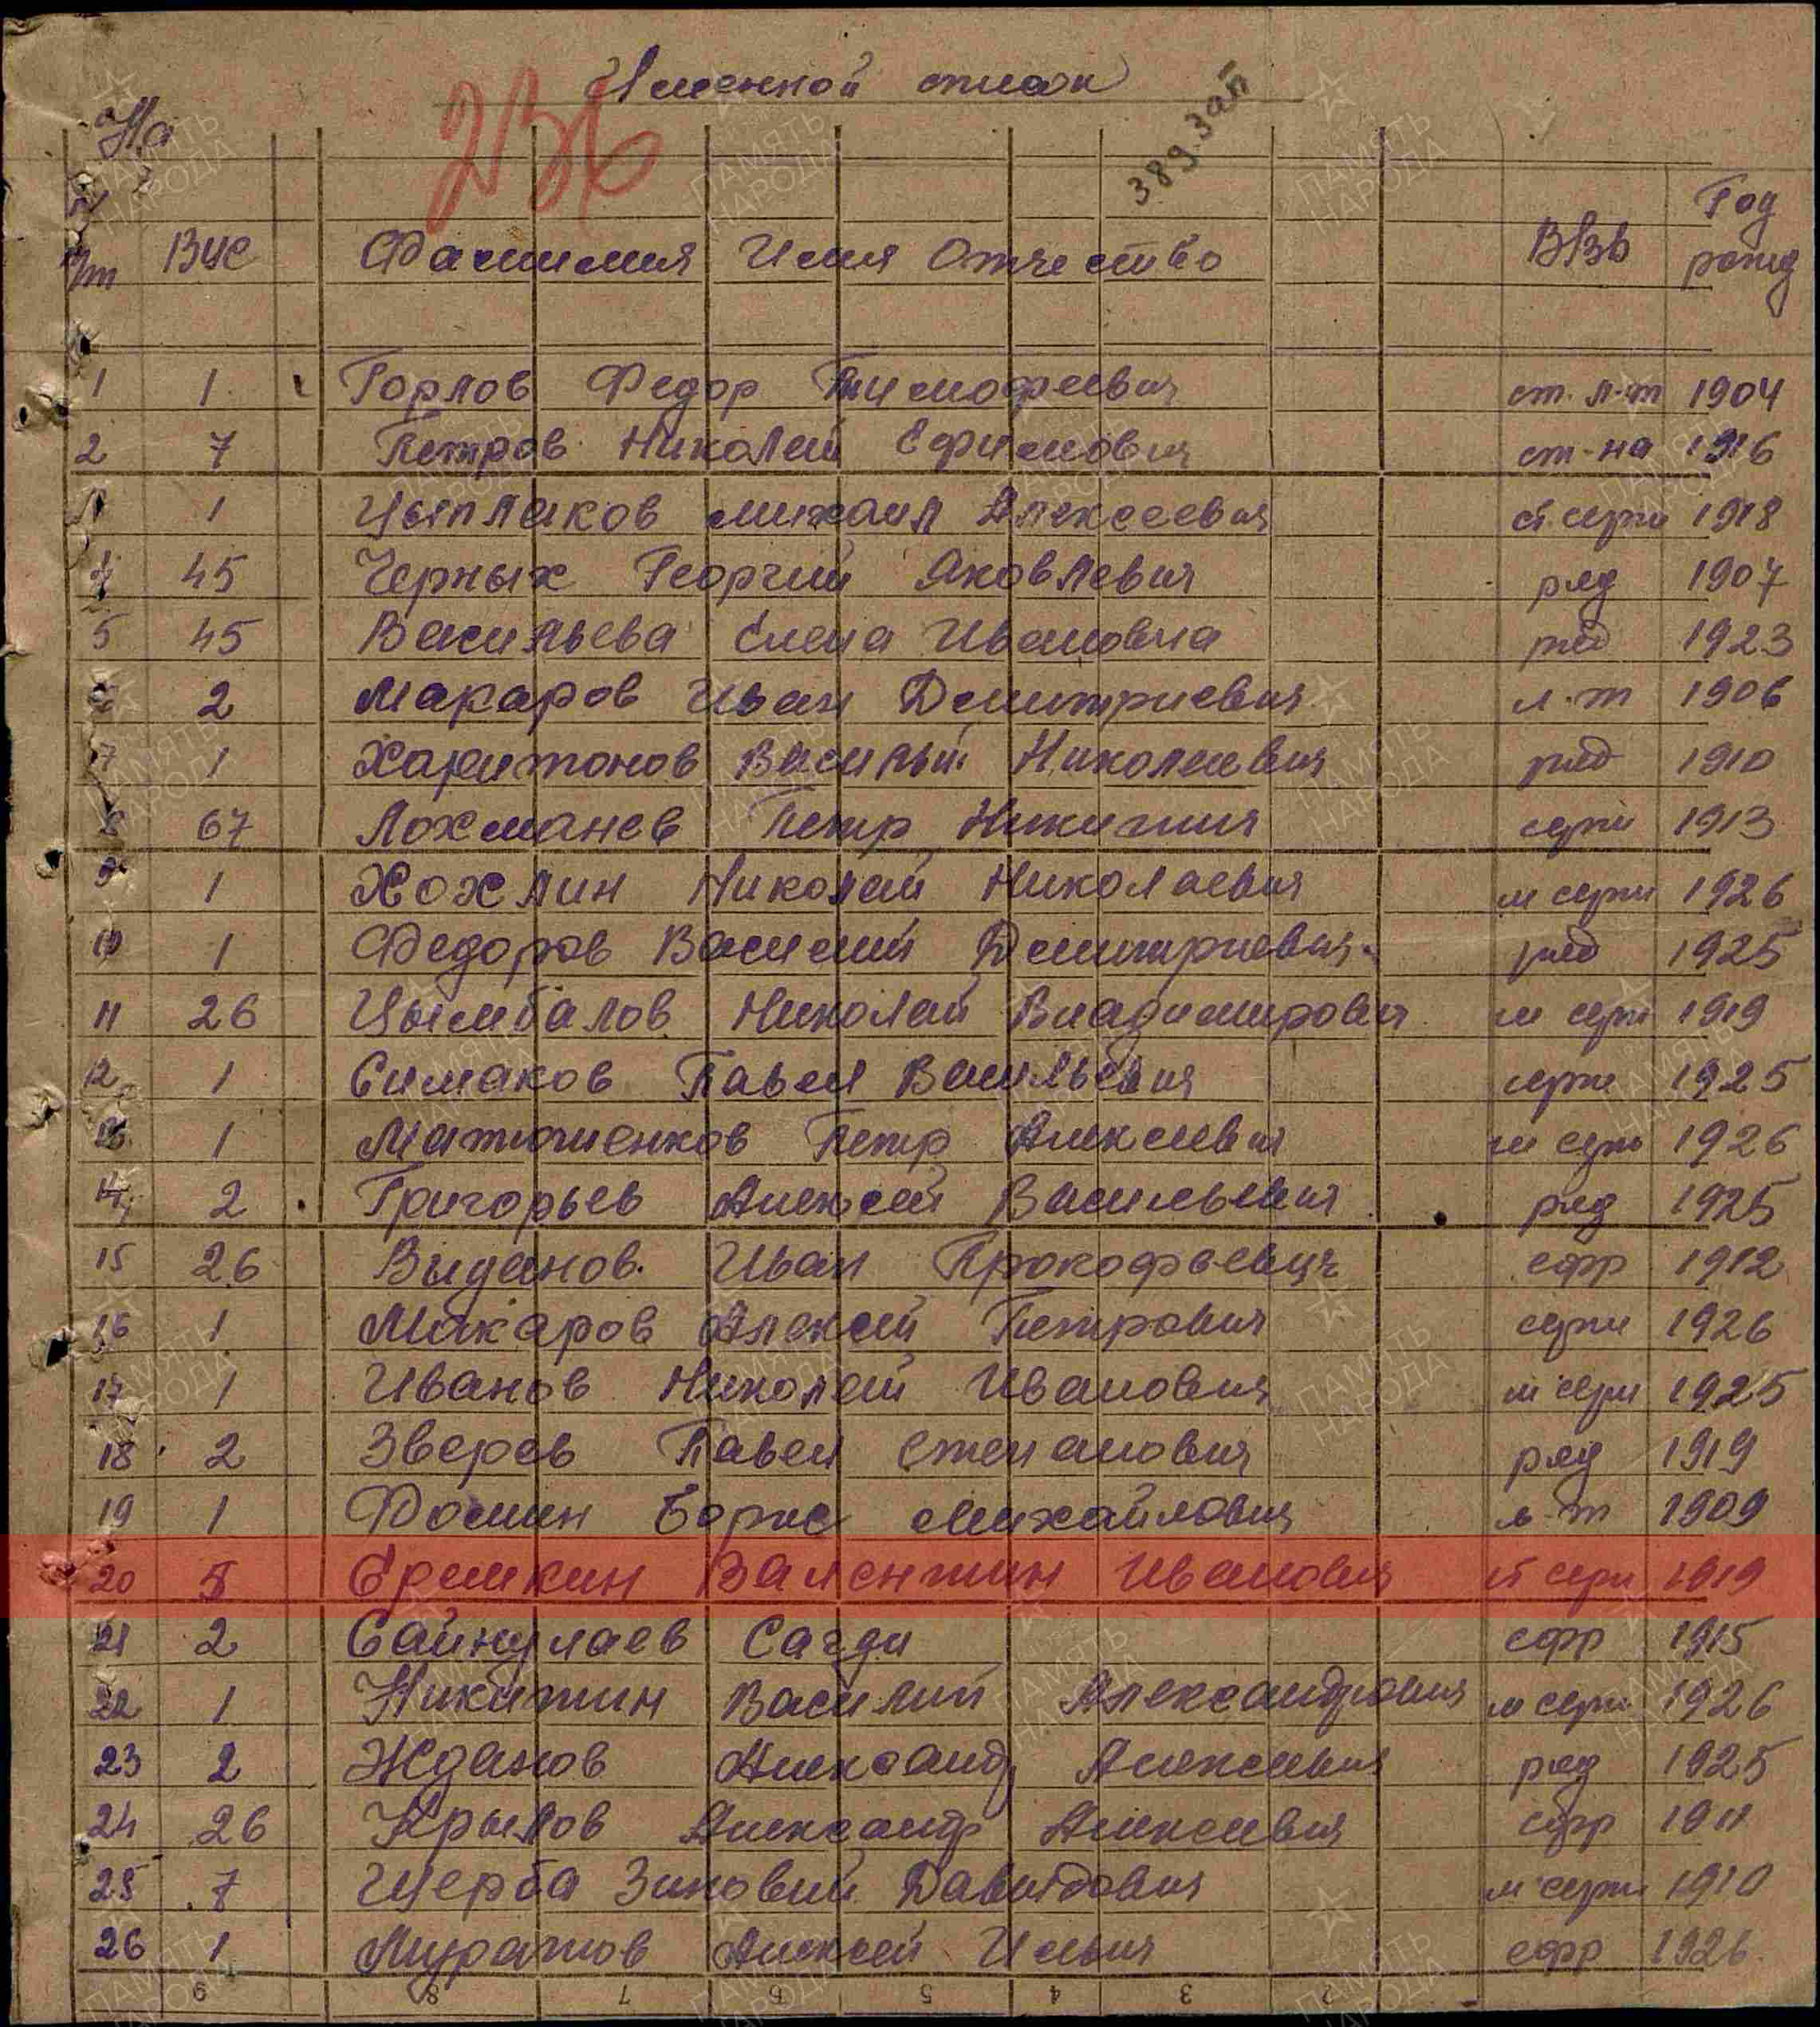 Именной список
236
389 зап
№
п/п ВУС Фамилия Имя Отчество В/Зв Год рожд
1 1 Горлов Федор Тимофеевич ст. л-т 1904
2 7 Петров Николай Ефимович ст-на 1916
1 Цыплаков михаил Алексеевич ст. серж 1918
4 45 Черных Георгий Яковлевич ряд 1907
5 45 Васильева Елена Ивановна ряд 1923
6 2 Макаров Иван Дмитриевич л-т 1906
7 1 Харитонов Василий Николаевич ряд 1910
8 67 Лохманев Петр Никитич серж 1913
9 1 Хохлин Николай Николаевич м серж 1926
10 1 Федоров Василий Дмитриевич ряд 1925
11 26 Цымбалов Николай Владимирович м серж 1919
12 1 Симаков Павел Васильевич серж 1925
13 1 Матюшенков Петр Алексеевич м серж 1926
14 2 Григорьев Алексей Васильевич ряд 1925
15 26 Виданов Иван Прокофьевич ефр 1912
16 1 Макаров Алексей Петрович серж 1926
17 1 Иванов Николай Иванович м серж 1925
18 2 Зверев Павел Степанович ряд 1919
19 1 Фомин Борис Михайлович л-т 1909
20 5 Еремкин Валентин Иванович ст серж 1919
21 2 Сайнулаев Сагди ефр 1915
22 1 Никитин Василий Александрович м серж 1926
23 2 Жданов Александ Алексеевич ряд 1925
24 26 Крылов Александр Алексеевич ефр 1911
25 7 Щерба Зиновий Давидович м серж 1910
26 1 Муратов Алексей Ильич ефр 1926
9 8 7 6 5 4 3 2